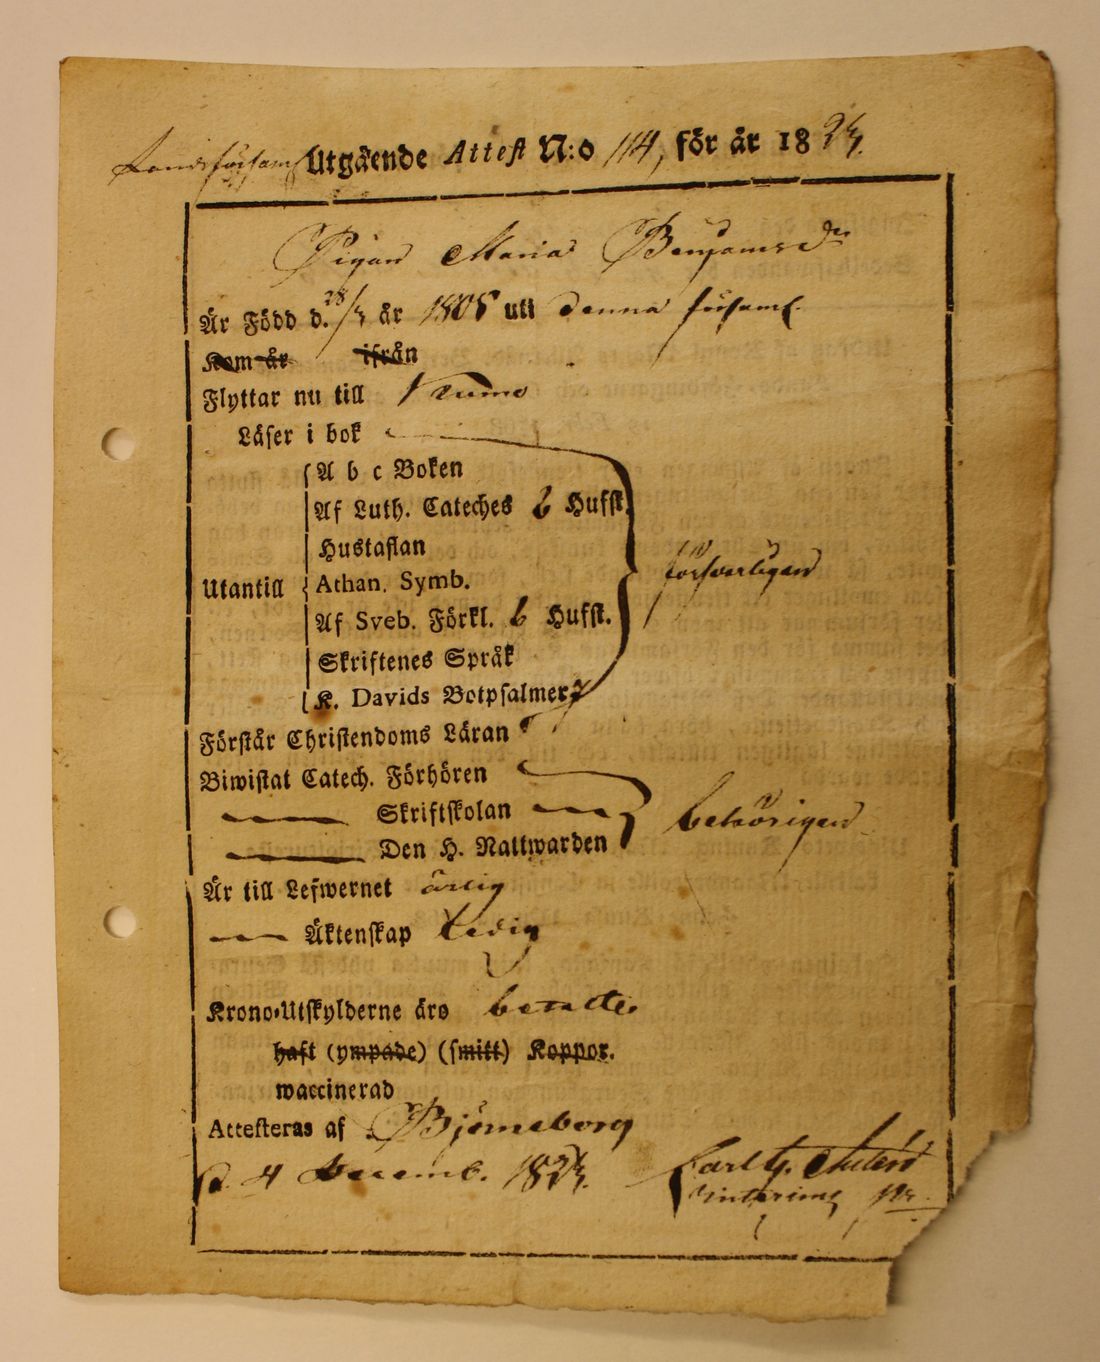 Landsförsaml. Utgående Attest N:o 114, för år 182
Pigan Maria Benjamsdr
Är Född d. 28/ år 1805 uti denna församl.
Kom år ifrån
Flyttar nu till Kumo
Läser i bok
A b c Boken
Af Luth. Cateches 6 Hufst.
Hustaflan
Utantill Athan. Symb. försvarligen
Af Sveb. Förkl. 6 Hufst.
Skriftenes Språk
K. Davids Botpsalmer
Förstår Christendoms Läran
Biwistat Catech. Förhören
Skriftskolan behörigen
Den H. Nattwarden
Är till Lefwernet ärlig
Äktenskap Ledig
Krono-Utskylderne äro betalte
haft (ympade) (smitt) Koppor.
waccinerad
Attesteras af Björneborg
d. 4 Decemb. 182 Carl G.